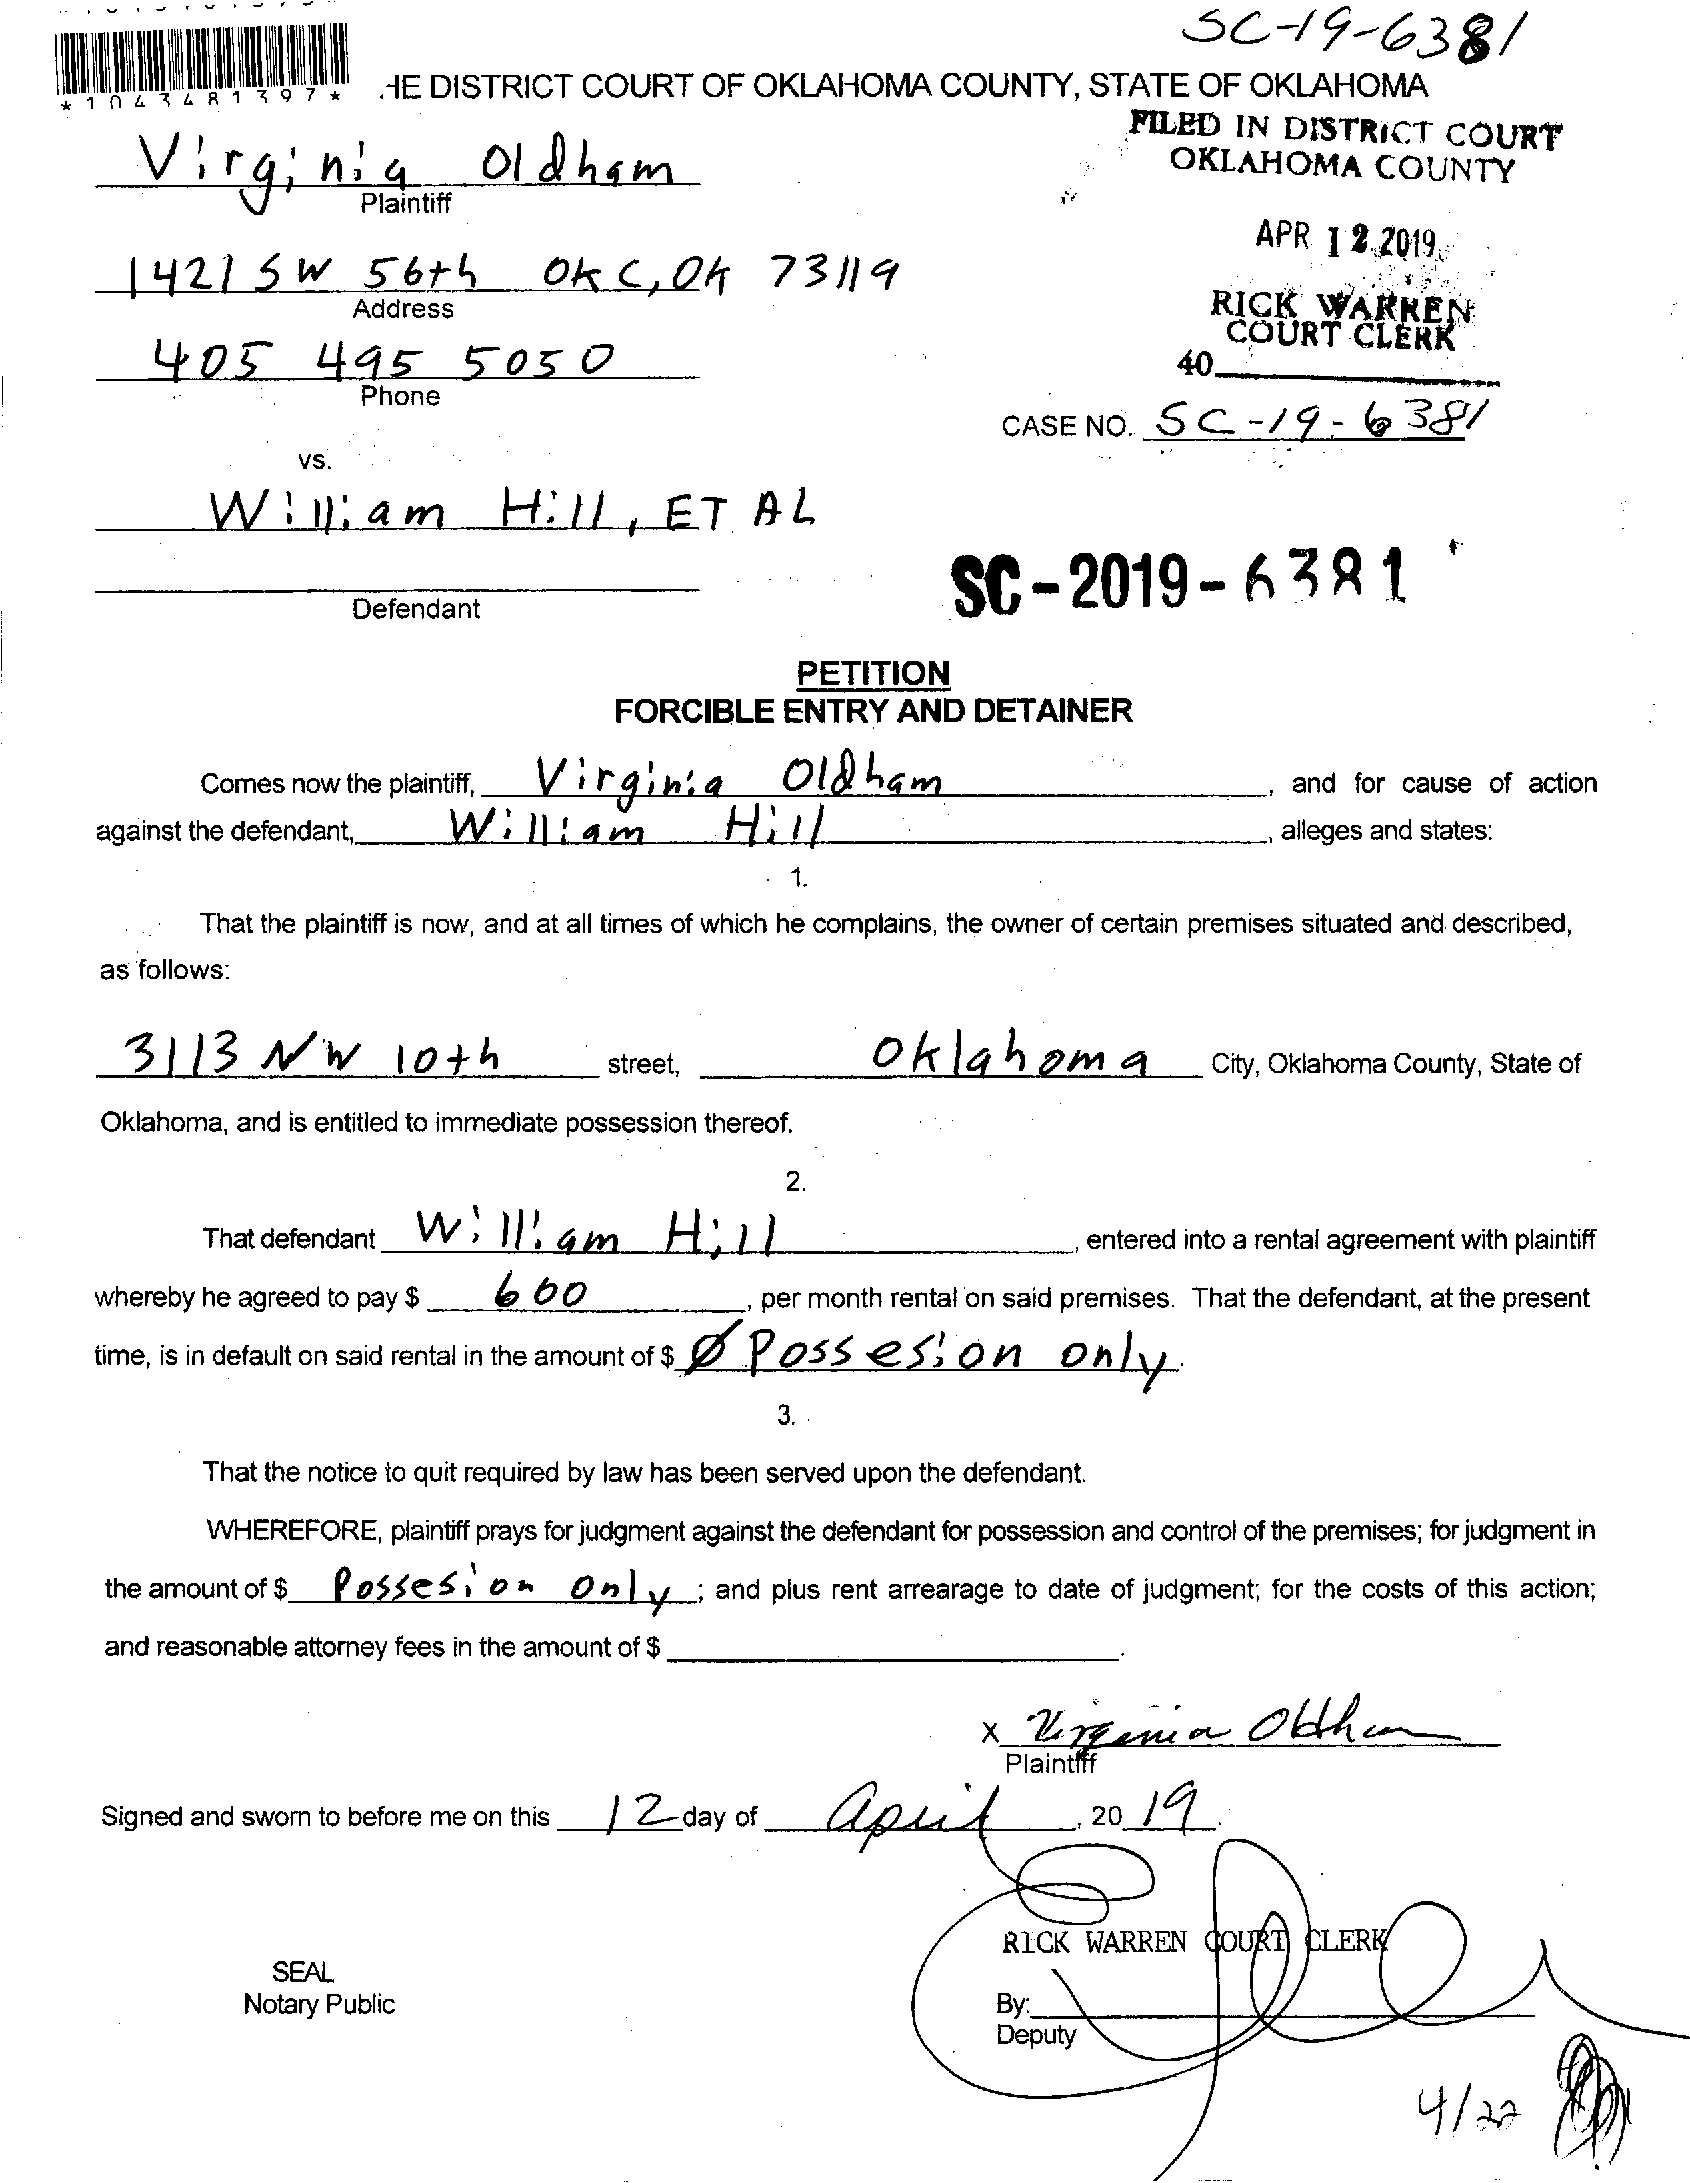 SC-19-6381
*1043481397*
HE DISTRICT COURT OF OKLAHOMA COUNTY, STATE OF OKLAHOMA
FILED IN DISTRICT COURT
OKLAHOMA COUNTY
Virginia Oldham
Plaintiff
APR 12 2019
1421 SW 56th OKC, OK 73119
Address
RICK WARREN
COURT CLERK
40
405 495 5050
Phone
CASE NO. SC-19-6381
vs.
William Hill, ET AL
SC-2019-6381
Defendant
PETITION
FORCIBLE ENTRY AND DETAINER
Comes now the plaintiff, Virginia Oldham, and for cause of action
against the defendant, William Hill, alleges and states:
1.
That the plaintiff is now, and at all times of which he complains, the owner of certain premises situated and described,
as follows:
3113 NW 10th street, Oklahoma City, Oklahoma County, State of
Oklahoma, and is entitled to immediate possession thereof.
2.
That defendant William Hill, entered into a rental agreement with plaintiff
whereby he agreed to pay $ 600, per month rental on said premises. That the defendant, at the present
time, is in default on said rental in the amount of $ Ø Possesion only.
3.
That the notice to quit required by law has been served upon the defendant.
WHEREFORE, plaintiff prays for judgment against the defendant for possession and control of the premises; for judgment in
the amount of $ Possesion only; and plus rent arrearage to date of judgment; for the costs of this action;
and reasonable attorney fees in the amount of $ .
X Virginia Oldham
Plaintiff
Signed and sworn to before me on this 12 day of April, 20 19.
RICK WARREN COURT CLERK
SEAL
Notary Public
By:
Deputy
4/22